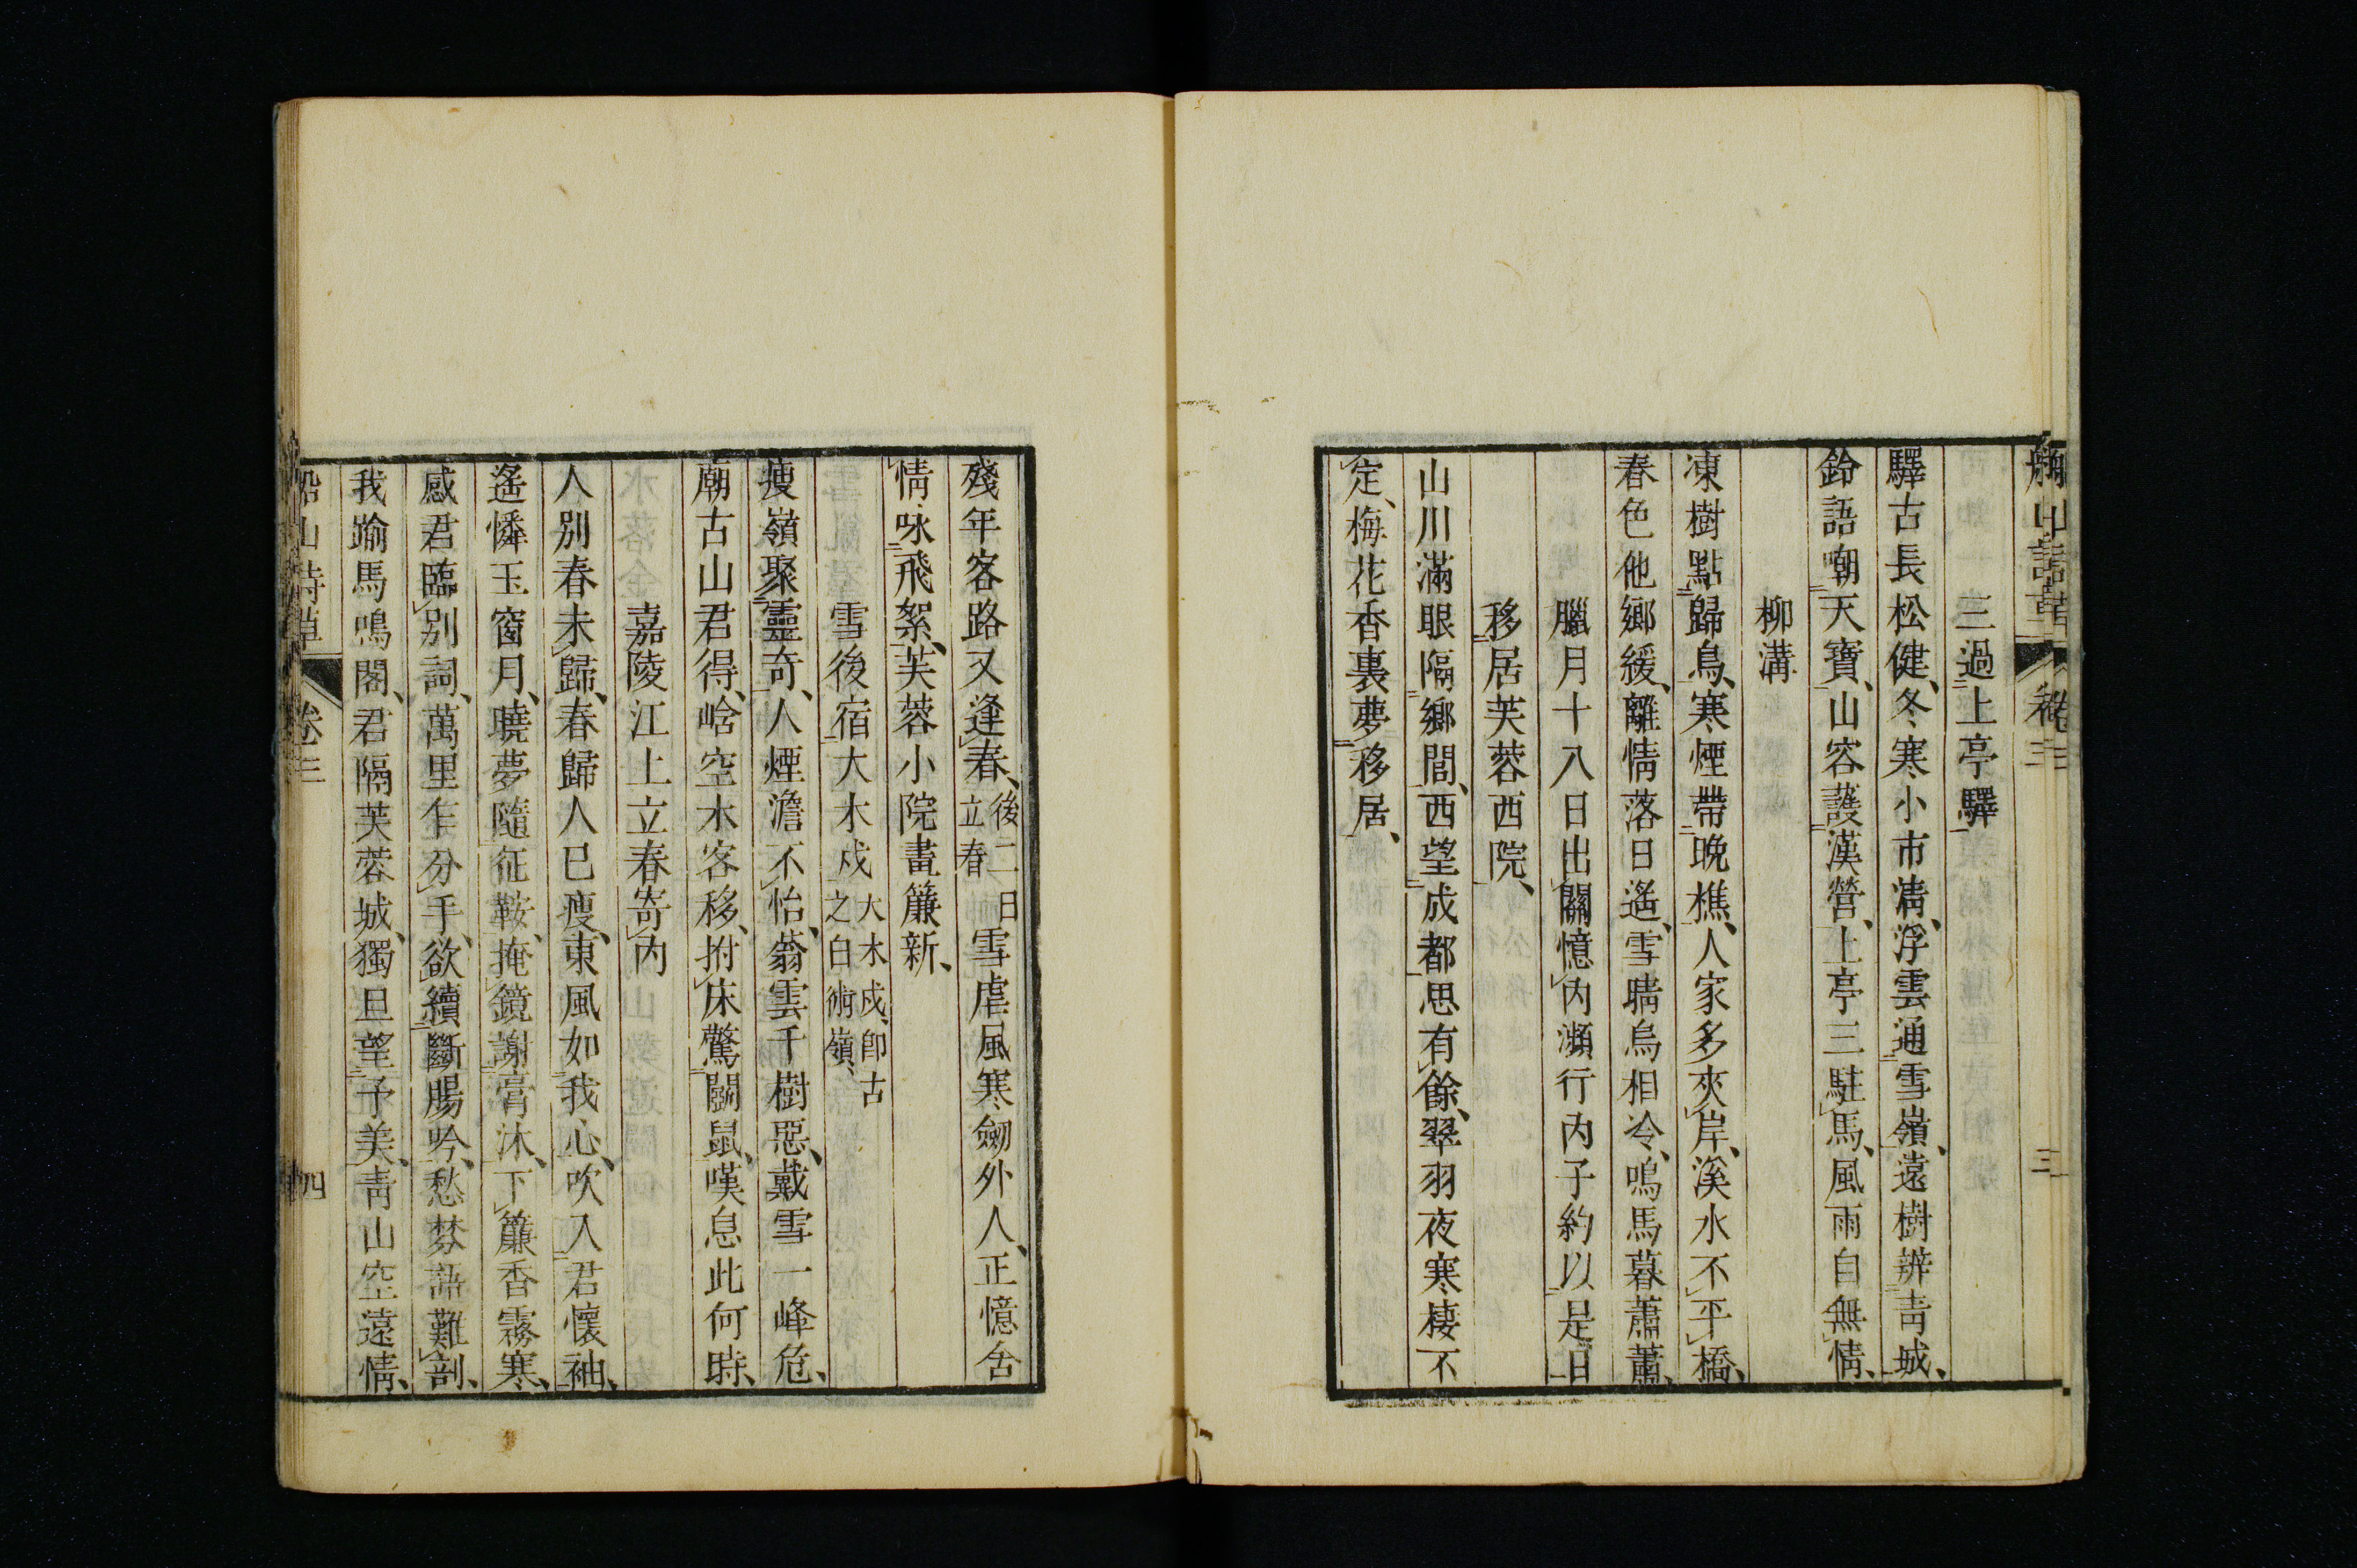 船山詩草 卷三 三
三過上亭驛
驛古長松健、冬寒小市清、浮雲通雪嶺、遠樹辨青城、
鈴語嘲天寶、山容護漢營、上亭三駐馬、風雨自無情、
柳溝
凍樹點歸鳥、寒煙帶晚樵、人家多夾岸、溪水不平橋、
春色他鄉緩、離情落日遙、雪晴烏相冷、鳴馬暮蕭蕭、
臘月十八日出關憶内瀕行内子約以是日
移居芙蓉西院、
山川滿眼隔鄉閭、西望成都思有餘、翠羽夜寒棲不
定、梅花香裏夢移居、
殘年客路又逢春、後二日立春雪虐風寒劒外人、正憶含
情咏飛絮、芙蓉小院畫簾新、
雪後宿大木戍大木戍、卽古之白術嶺、
瘦嶺聚靈奇、人煙澹不怡、蓊雲千樹惡、戴雪一峰危、
廟古山君得、崄空木客移、拊床驚鬭鼠、嘆息此何時、
嘉陵江上立春寄内
人別春未歸、春歸人已瘦、東風如我心、吹入君懷袖、
遙憐玉窗月、曉夢隨征鞍、掩鏡謝膏沐、下簾香霧寒、
感君臨別詞、萬里乍分手、欲續斷腸吟、愁棼語難剖、
我踰馬鳴閣、君隔芙蓉城、獨旦望予美、靑山空遠情、
船山詩草 卷三 四